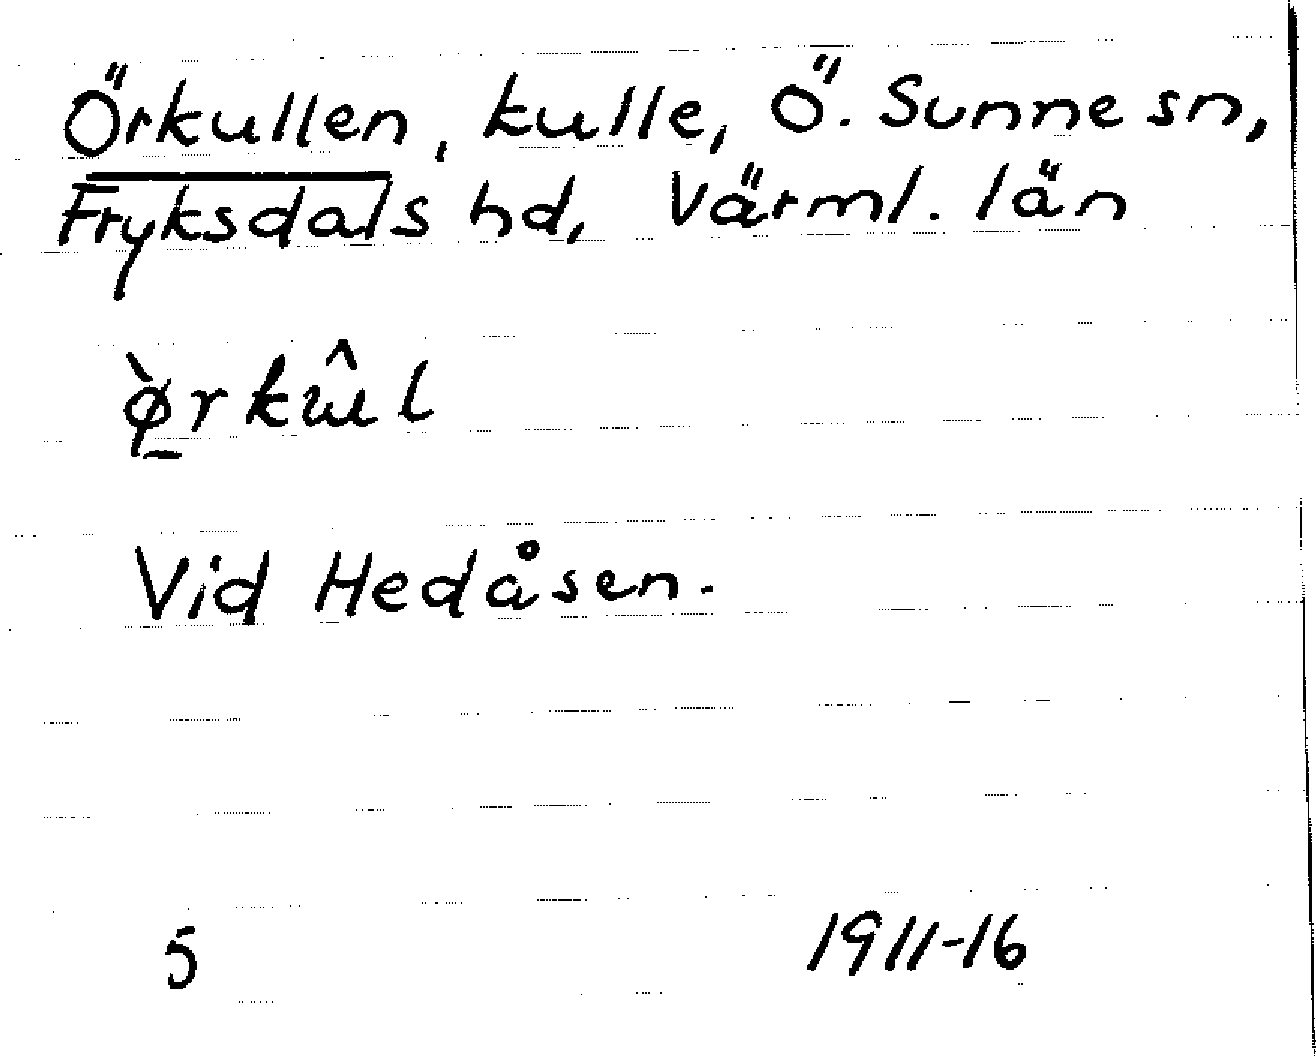 Örkullen, kulle, Ö. Sunne sn,
Fryksdals hd, Värml. län
ø̱̀rkɯ̂l
Vid Hedåsen.
5 1911-16